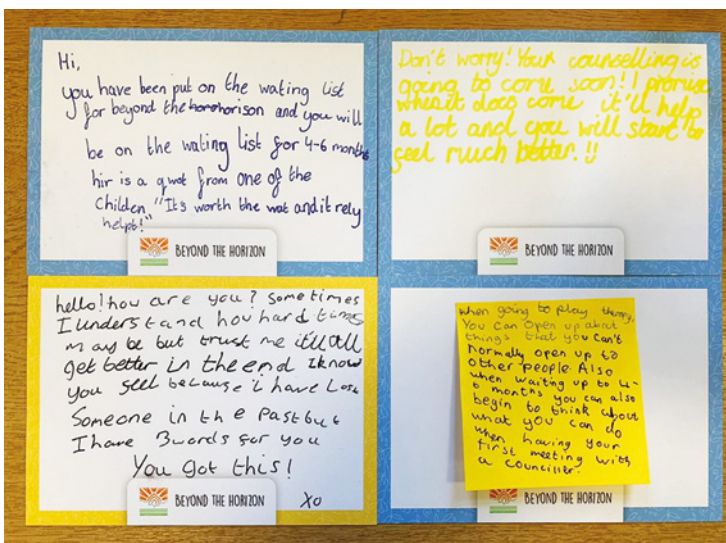 Hi,
you have been put on the wating list
for beyond the horison and you will
be on the wating list for 4-6 months
hir is a qwot from one of the
Childen "It's worth the wat and it rely
helpt!"
BEYOND THE HORIZON
Don't worry! Your councelling is
going to come soon!! I promise
when it does come it'll help
a lot and you will start to
feel much better. !!
BEYOND THE HORIZON
hello! how are you? Sometimes
I understand how hard times
may be but trust me it'll all
get better in the end I know
you feel because i have Lost
Someone in the Past but
I have 3 words for you
You got this!
BEYOND THE HORIZON
XO
when going to play therapy,
You can open up about
things that you can't
normally open up to
other people. Also
when waiting up to 4-
6 months you can also
begin to think about
what you can do
when having your
first meeting with
a counciller.
BEYOND THE HORIZON